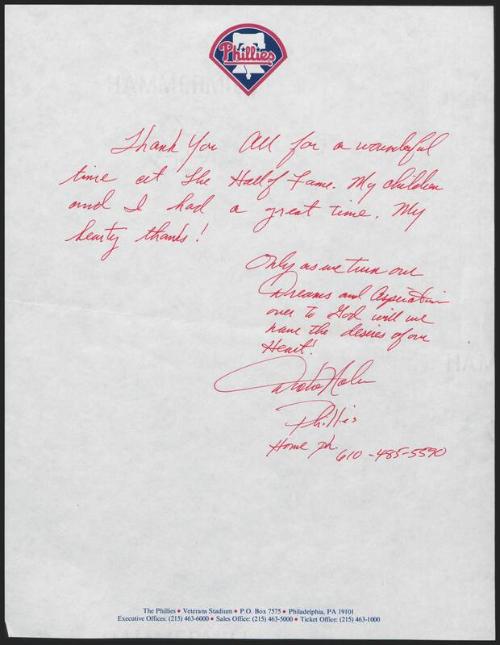 Phillies
Thank You All for a wounderful
time at the Hall of Fame. My children
and I had a great time. My
hearty thanks!
Only as we turn our
Dreams and Aspiration
over to God will we
have the desires of our
Heart!
Phillis
Home ph 610-485-5590
The Phillies • Veterans Stadium • P.O. Box 7575 • Philadelphia, PA 19101
Executive Offices: (215) 463-6000 • Sales Office: (215) 463-5000 • Ticket Office: (215) 463-1000